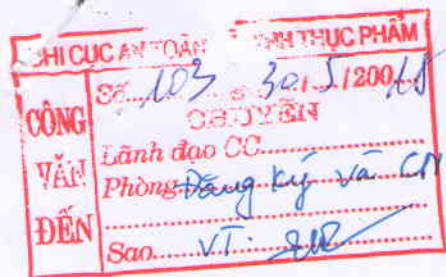 CHI CỤC AN TOÀN VỆ SINH THỰC PHẨM
CÔNG VĂN ĐẾN
Số 103 30/5/200 18
CHUYỂN
Lãnh đạo CC
Phòng Đăng ký và CN
Sao VT.